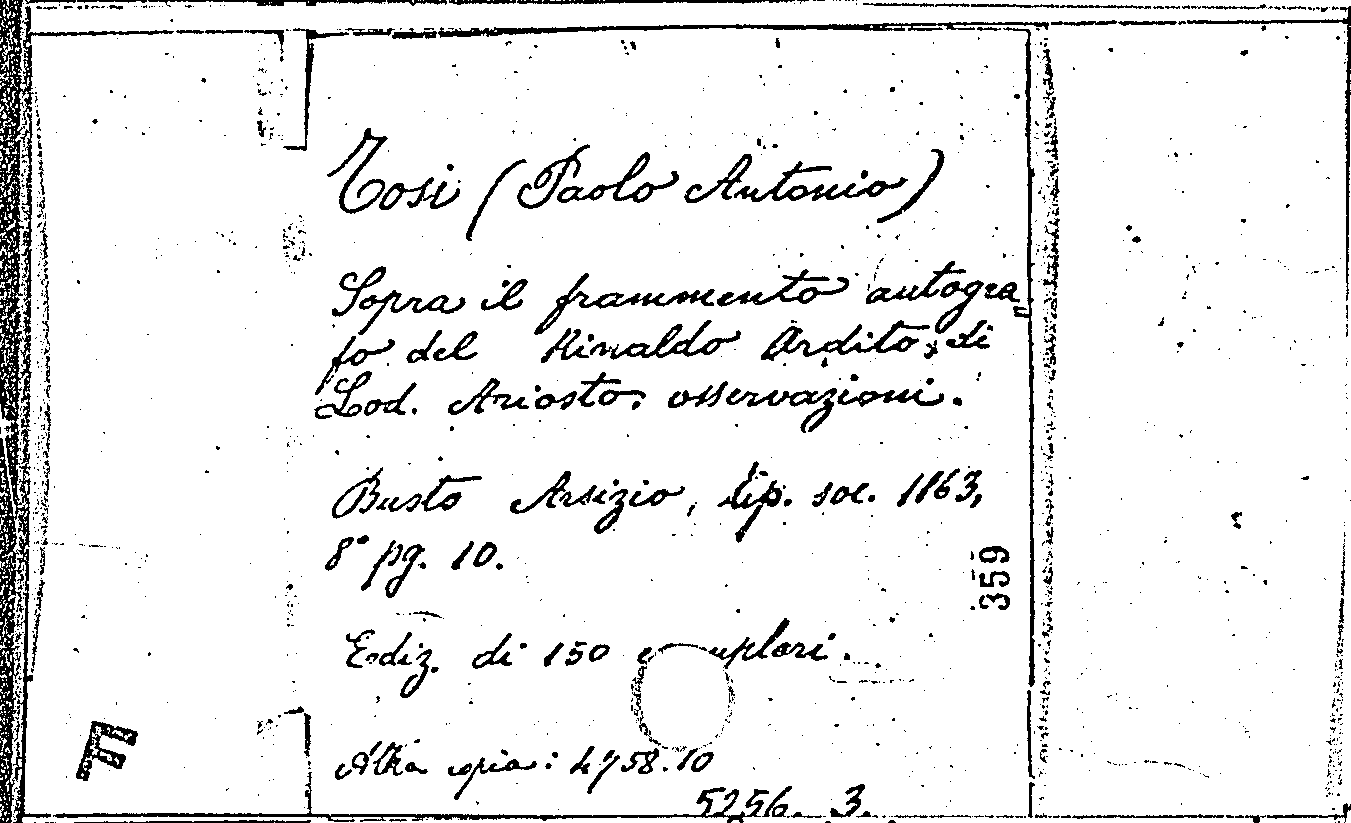 Tosi (Paolo Antonio)
Sopra il frammento autogra=
fo del Rinaldo Ardito, di
Lod. Ariosto, osservazioni.
Busto Arsizio, tip. soc. 1863,
8° pg. 10.
359
Ediz. di 150 esemplari.
Altra copia: 4758.10
5256. 3.
F